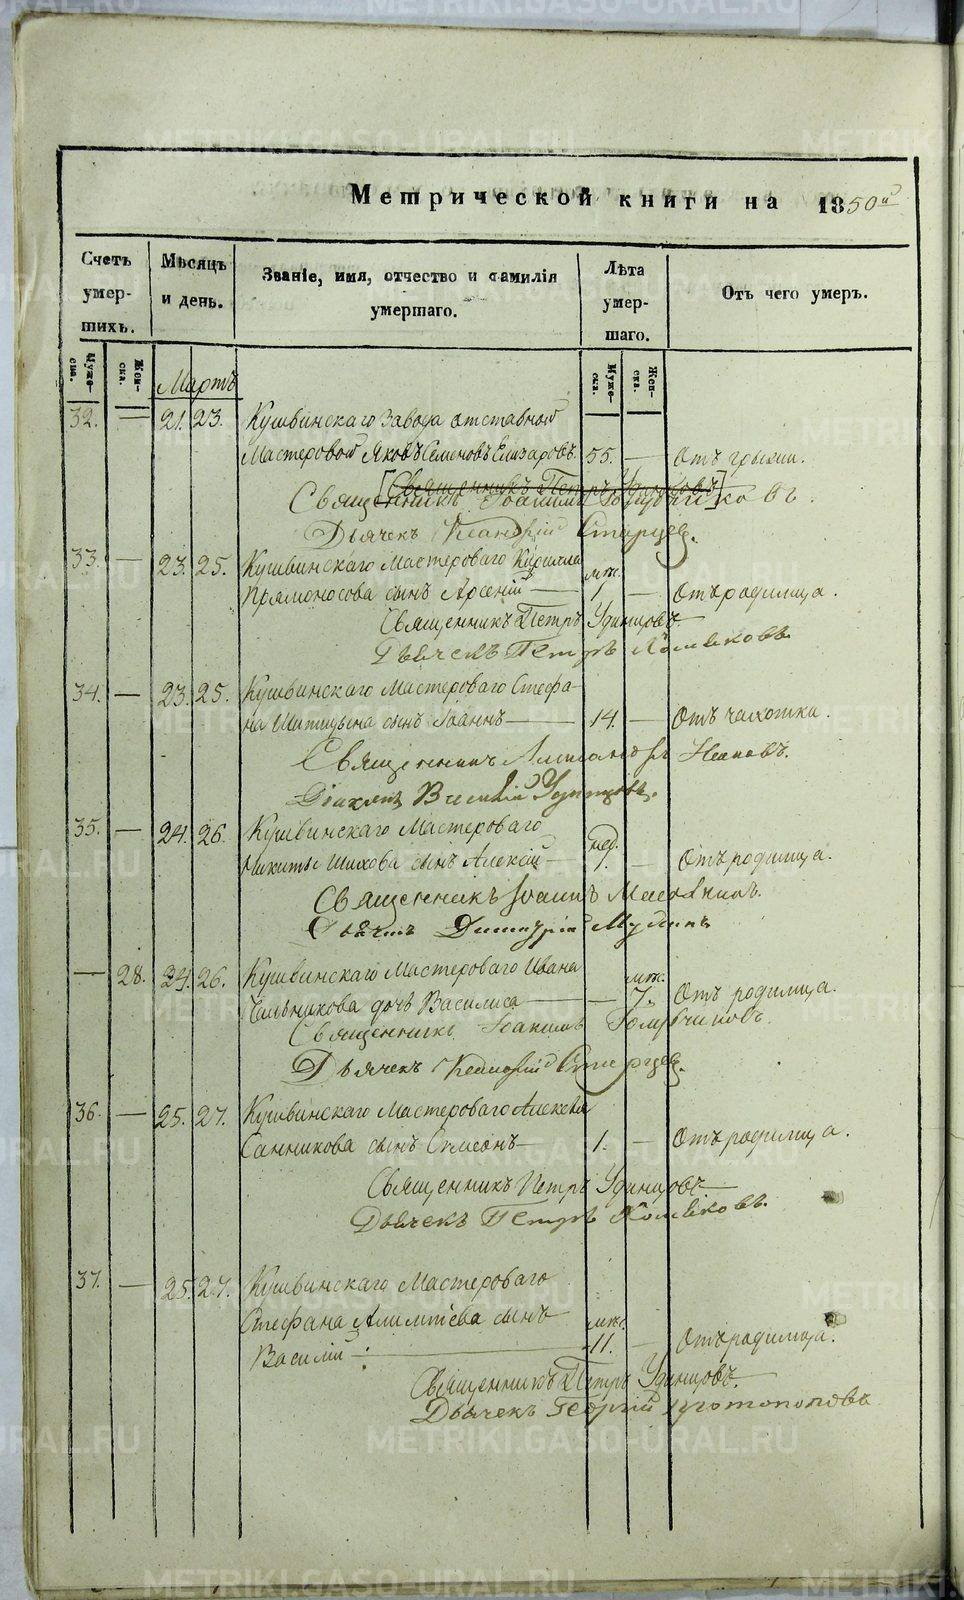 METRIKI.GASO-URAL.RU
Метрической книги на 1850й
Счетъ умер-шихъ.
Мѣсяцъ и день.
Званіе, имя, отчество и фамилія умершаго.
Лѣта умер-шаго.
Отъ чего умеръ.
Муже-ска.
Жен-ска.
Муже-ска.
Жен-ска.
Мартъ
32. — 21. 23. Кушвинскаго Завода отставной
Мастеровой Яковъ Семеновъ Елизаровъ. 55. — Отъ грыжи.
[Священникъ Петръ Удинцовъ]
Священникъ Іоаннъ
Дьячекъ Старцев.
33. — 23. 25. Кушвинскаго Мастероваго Кирилла мѣс.
Прямоносова сынъ Арсеній — 1 — Отъ родимца.
Священникъ Петръ Удинцовъ
Дьячекъ Петръ
34. — 23. 25. Кушвинскаго Мастероваго Стефа-
на сынъ Іоаннъ — 14. — Отъ чахотки.
Священникъ Поповъ.
Діаконъ Василій Удинцовъ.
35. — 24. 26. Кушвинскаго Мастероваго нед.
Никиты Шихова сынъ Алексій — 1. — Отъ родимца.
Священникъ Іоаннъ
Димитрій
— 28. 24. 26. Кушвинскаго Мастероваго Ивана мѣс.
дочь Василиса — — 7. Отъ родимца.
Священникъ
Дьячекъ Старцев.
36. — 25. 27. Кушвинскаго Мастероваго Алексѣя
Санникова сынъ Симеонъ — 1. — Отъ родимца.
Священникъ Петръ Удинцовъ
Дьячекъ Петръ
37. — 25. 27. Кушвинскаго Мастероваго
Стефана сынъ мѣс.
Василій — 11. — Отъ родимца.
Священникъ Петръ Удинцовъ.
Дьячекъ Георгій Протопоповъ